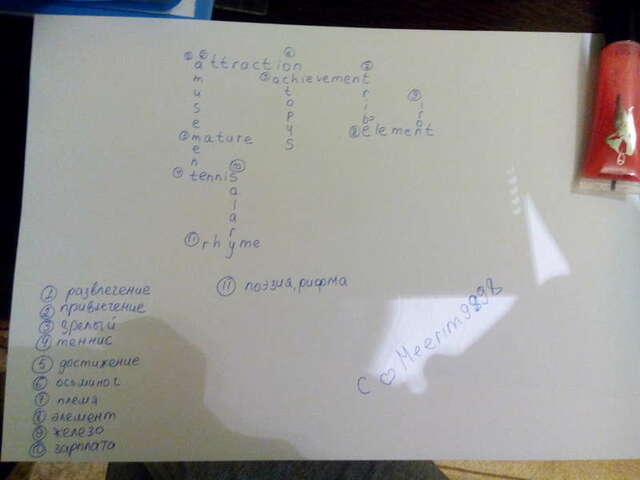 ① ② attraction
amusement
③ mature
④ tennis
⑤ achievement
⑥ octopys
⑦ tribe
⑧ element
⑨ iro
⑩ salary
⑪ rhyme
① развлечение
② привлечение
③ зрелый
④ теннис
⑤ достижение
⑥ осьминог
⑦ племя
⑧ элемент
⑨ железо
⑩ зарплата
⑪ поэзия, рифма
С ♡ Meerim9898